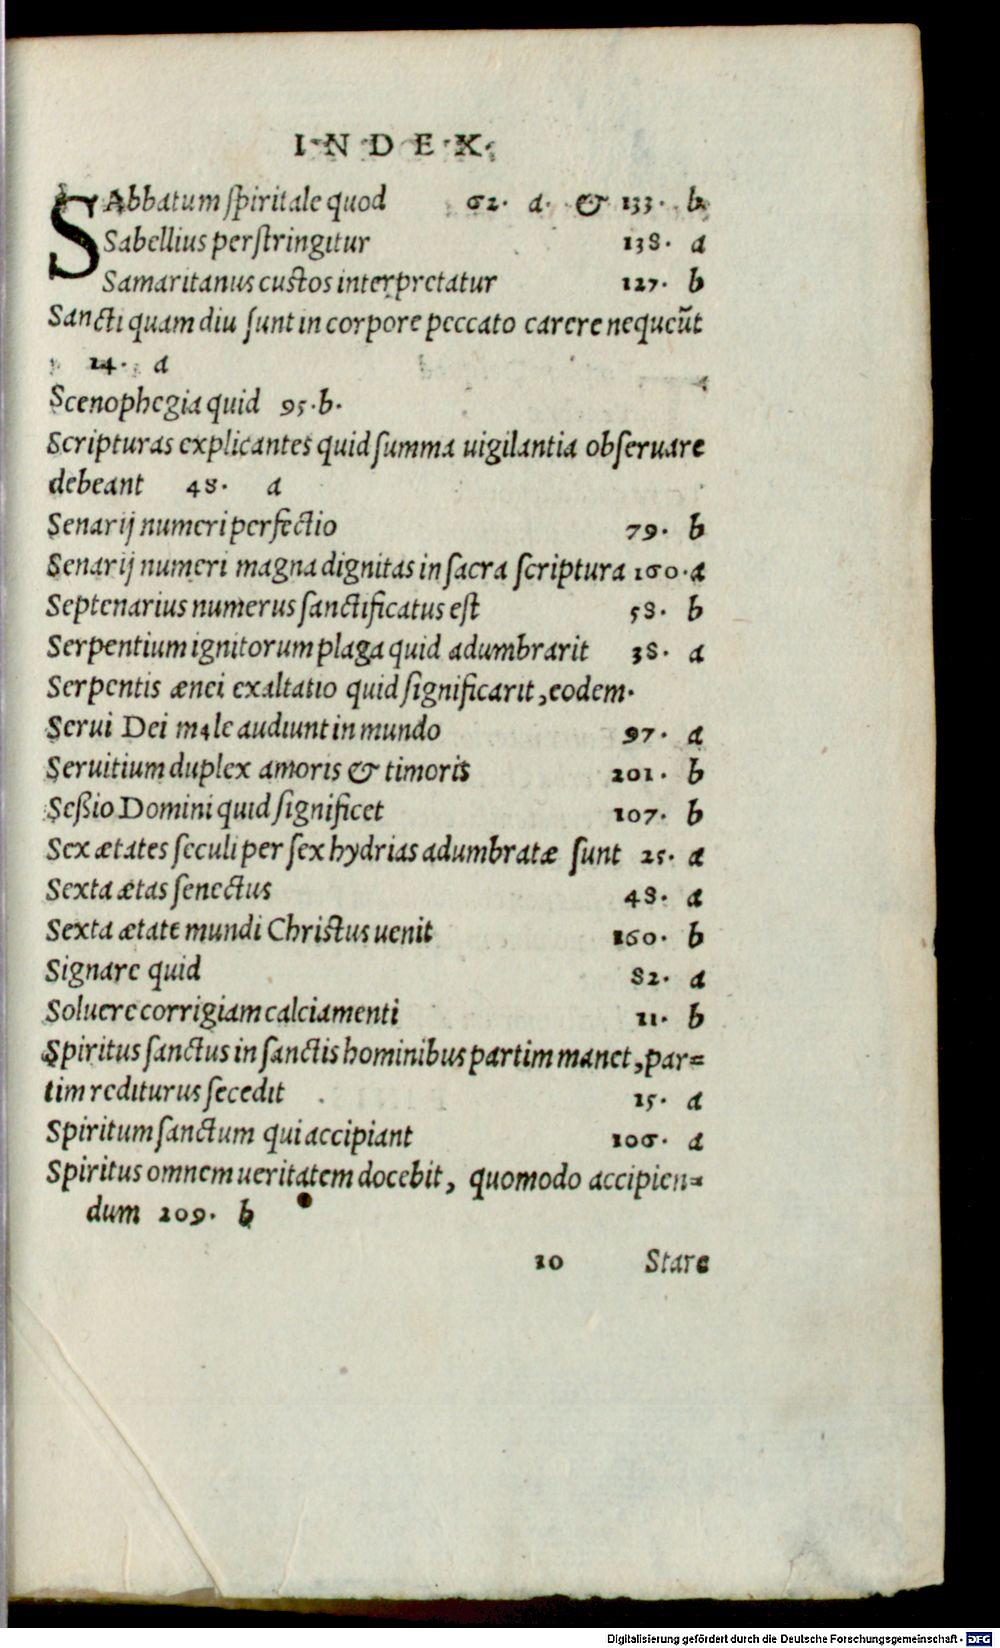 I·N·D·E·X·
SAbbatum ſpiritale quod 62. a. & 133. b
Sabellius perſtringitur 138. a
Samaritanus cuſtos interpretatur 127. b
Sancti quam diu ſunt in corpore peccato carere nequeũt
14. a
Scenophegia quid 95.b.
Scripturas explicantes quid ſumma uigilantia obſeruare
debeant 48. a
Senarij numeri perfectio 79. b
Senarij numeri magna dignitas in ſacra ſcriptura 160.a
Septenarius numerus ſanctificatus eſt 58. b
Serpentium ignitorum plaga quid adumbrarit 38. a
Serpentis ænei exaltatio quid ſignificarit, eodem.
Serui Dei male audiunt in mundo 97. a
Seruitium duplex amoris & timoris 201. b
Seßio Domini quid ſignificet 107. b
Sex ætates ſeculi per ſex hydrias adumbratæ ſunt 25. a
Sexta ætas ſenectus 48. a
Sexta ætate mundi Chriſtus uenit 160. b
Signare quid 82. a
Soluere corrigiam calciamenti 11. b
Spiritus ſanctus in ſanctis hominibus partim manet, par=
tim rediturus ſecedit 15. a
Spiritum ſanctum qui accipiant 106. a
Spiritus omnem ueritatem docebit, quomodo accipien=
dum 209. b
10 Stare
Digitalisierung gefördert durch die Deutsche Forschungsgemeinschaft - DFG